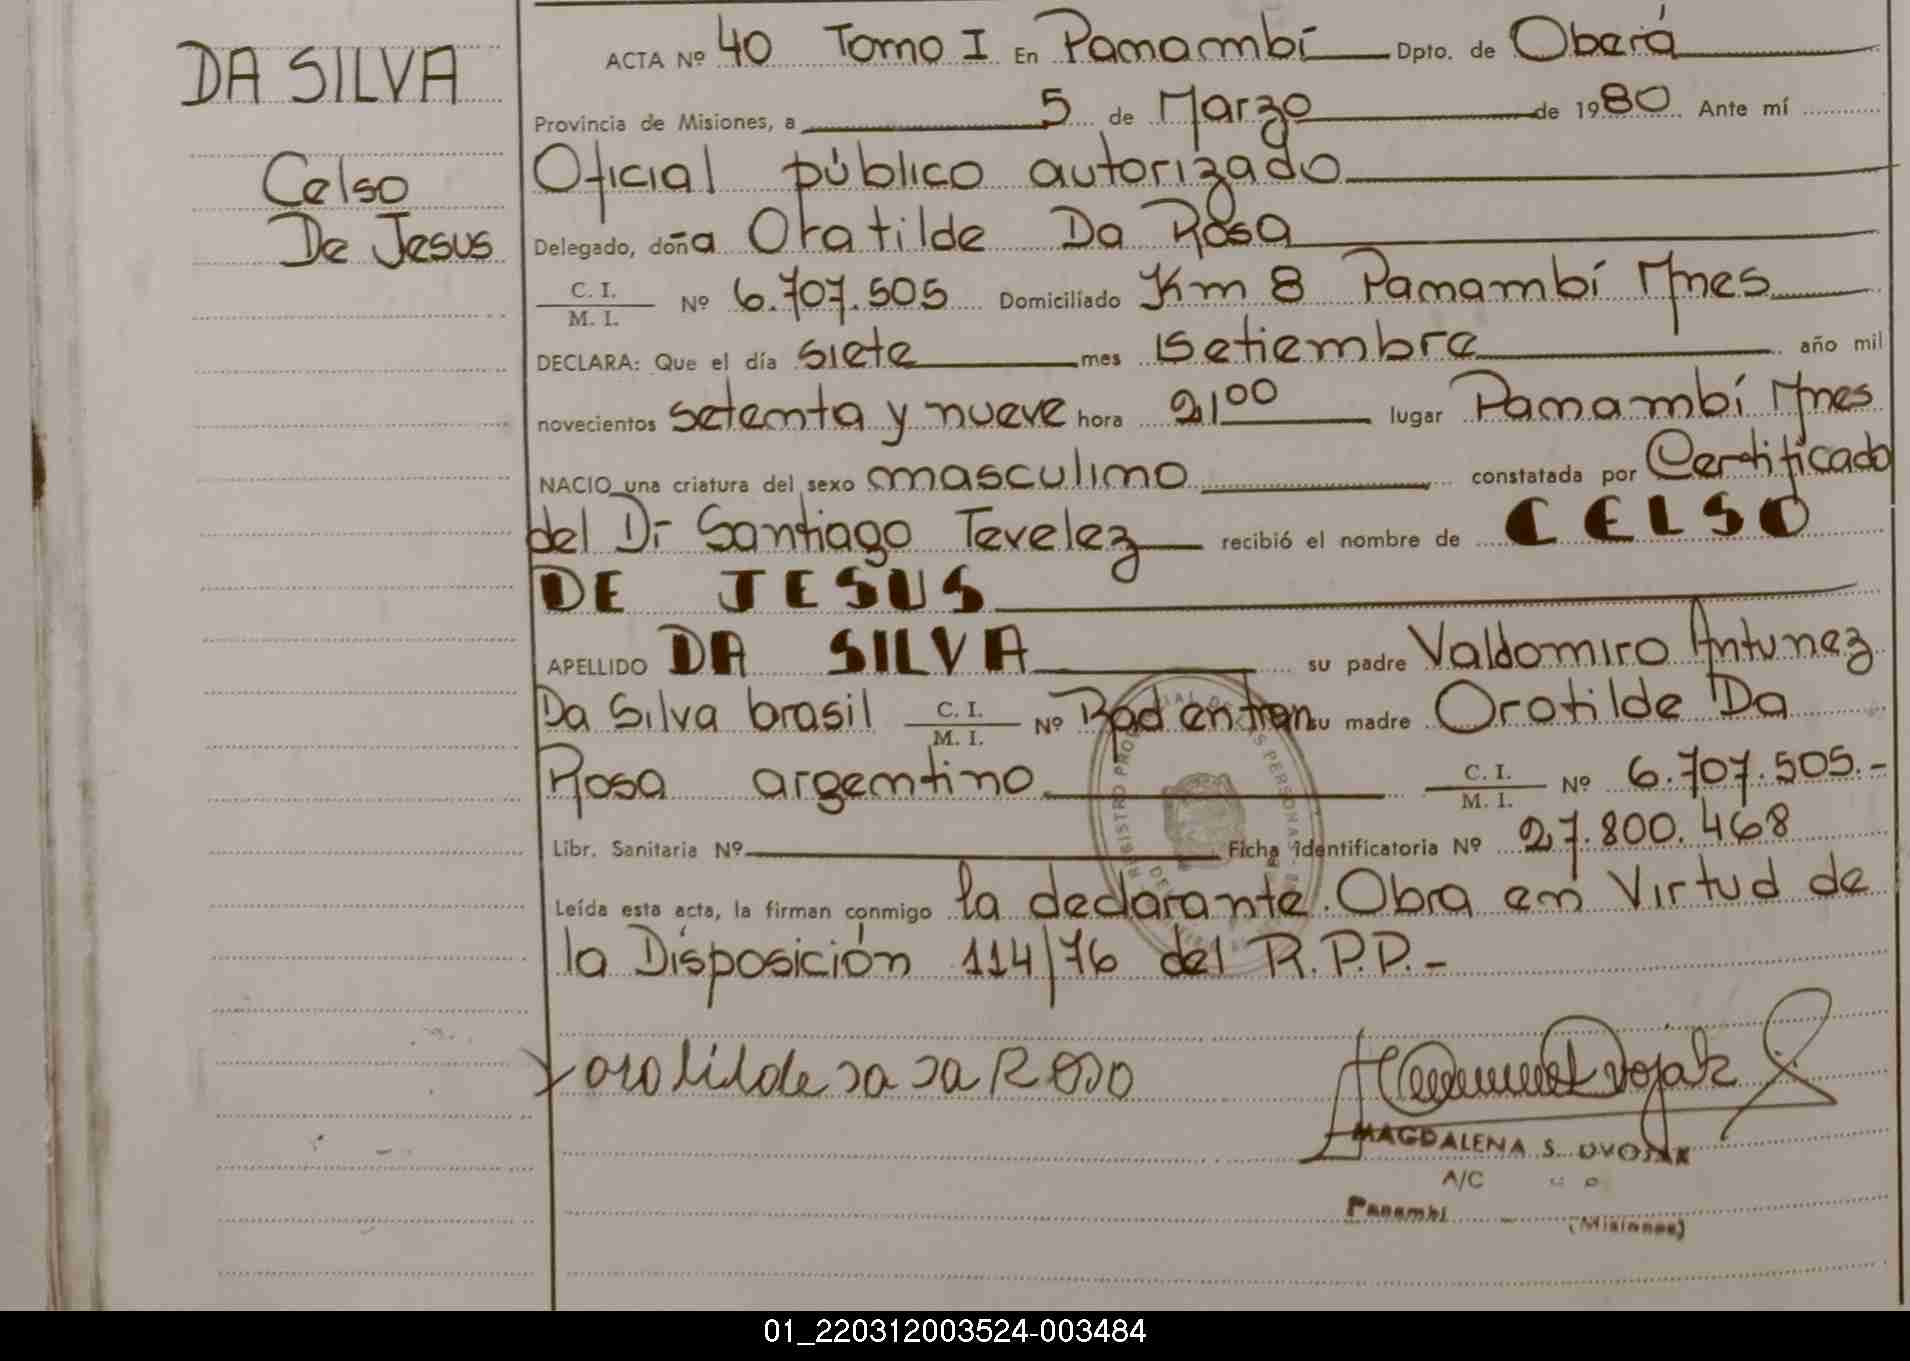 DA SILVA
Celso
De Jesus
ACTA Nº 40 Tomo I En Panambí Dpto. de Oberá
Provincia de Misiones, a 5 de Marzo de 1980 Ante mí
Oficial público autorizado
Delegado, doña Oratilde Da Rosa
C. I. / M. I. Nº 6.707.505 Domiciliado Km 8 Panambí Mnes
DECLARA: Que el día siete mes setiembre año mil
novecientos setenta y nueve hora 21 00 lugar Panambí Mnes
NACIO una criatura del sexo masculino constatada por Certificado
del Dr Santiago Tevelez recibió el nombre de CELSO
DE JESUS
APELLIDO DA SILVA su padre Valdomiro Antunez
Da Silva brasil C. I. / M. I. Nº Rad en tran su madre Orotilde Da
Rosa argentino C. I. / M. I. Nº 6.707.505.-
Libr. Sanitaria Nº Ficha identificatoria Nº 27.800.468
Leída esta acta, la firman conmigo la declarante. Obra en Virtud de
la Disposición 114/76 del R.P.P.-
MAGDALENA S. DVOJAK
A/C
Panambí (Misiones)
01_220312003524-003484